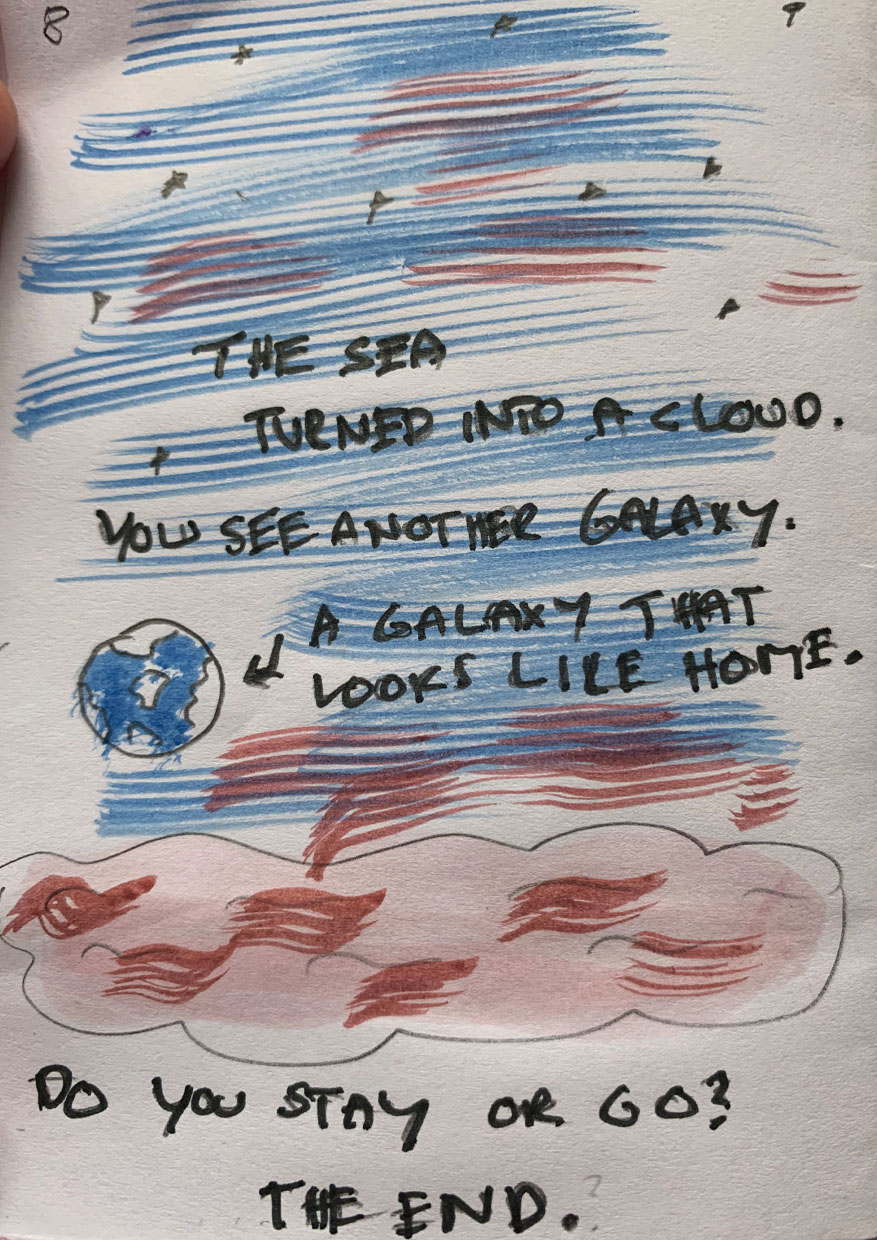 8 9
THE SEA
TURNED INTO A CLOUD.
YOU SEE ANOTHER GALAXY.
A GALAXY THAT
LOOKS LIKE HOME.
DO YOU STAY OR GO?
THE END.?